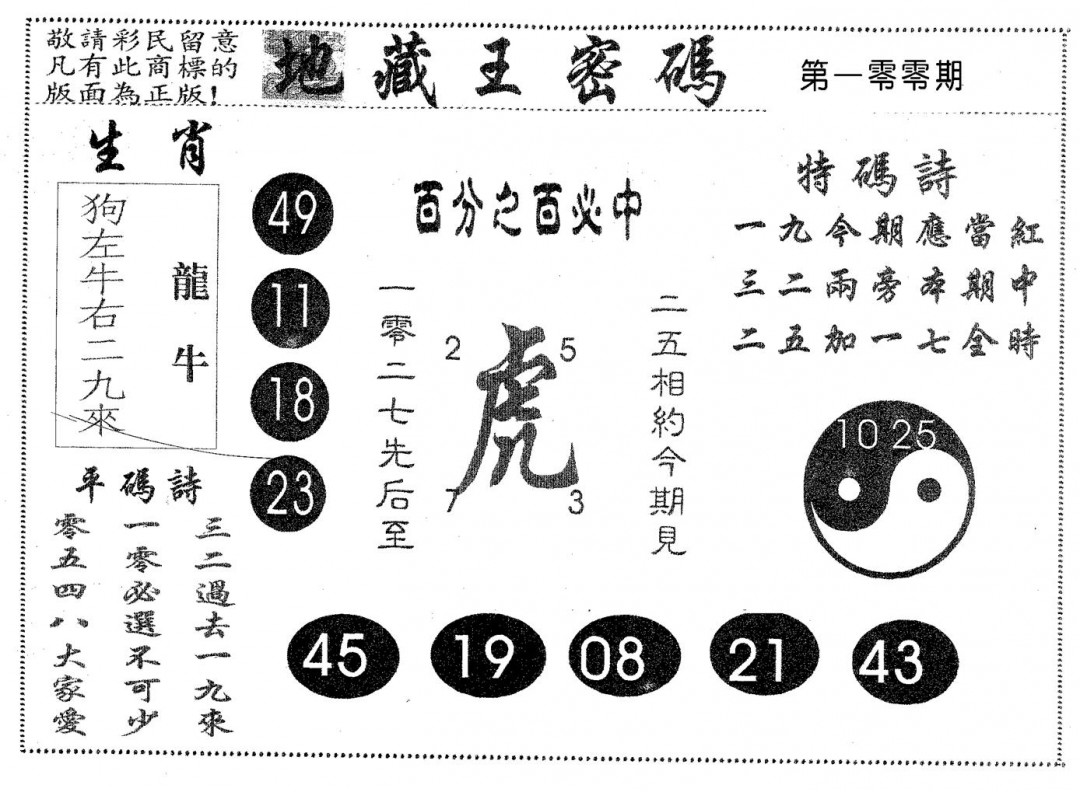 敬請彩民留意
凡有此商標的
版面為正版!
地藏王密碼
第一零零期
生肖
狗左牛右二九來
龍牛
49
11
18
23
百分之百必中
一零二七先后至
2
5
虎
7
3
二五相約今期見
特碼詩
一九今期應當紅
三二兩旁本期中
二五加一七全時
10 25
平碼詩
三二過去一九來
一零必選不可少
零五四八大家愛
45
19
08
21
43